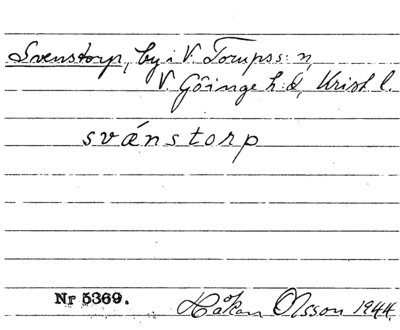 Svenstorp, by i V. Torups s:n,
V. Göinge h:d, Krist l.
svánstorp
Nr 5369. Håkan Olsson 1944.